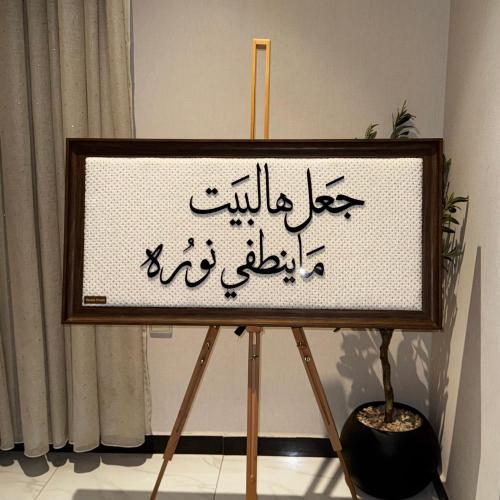 جَعَل هالبَيَت
مَاينطفي نورُه